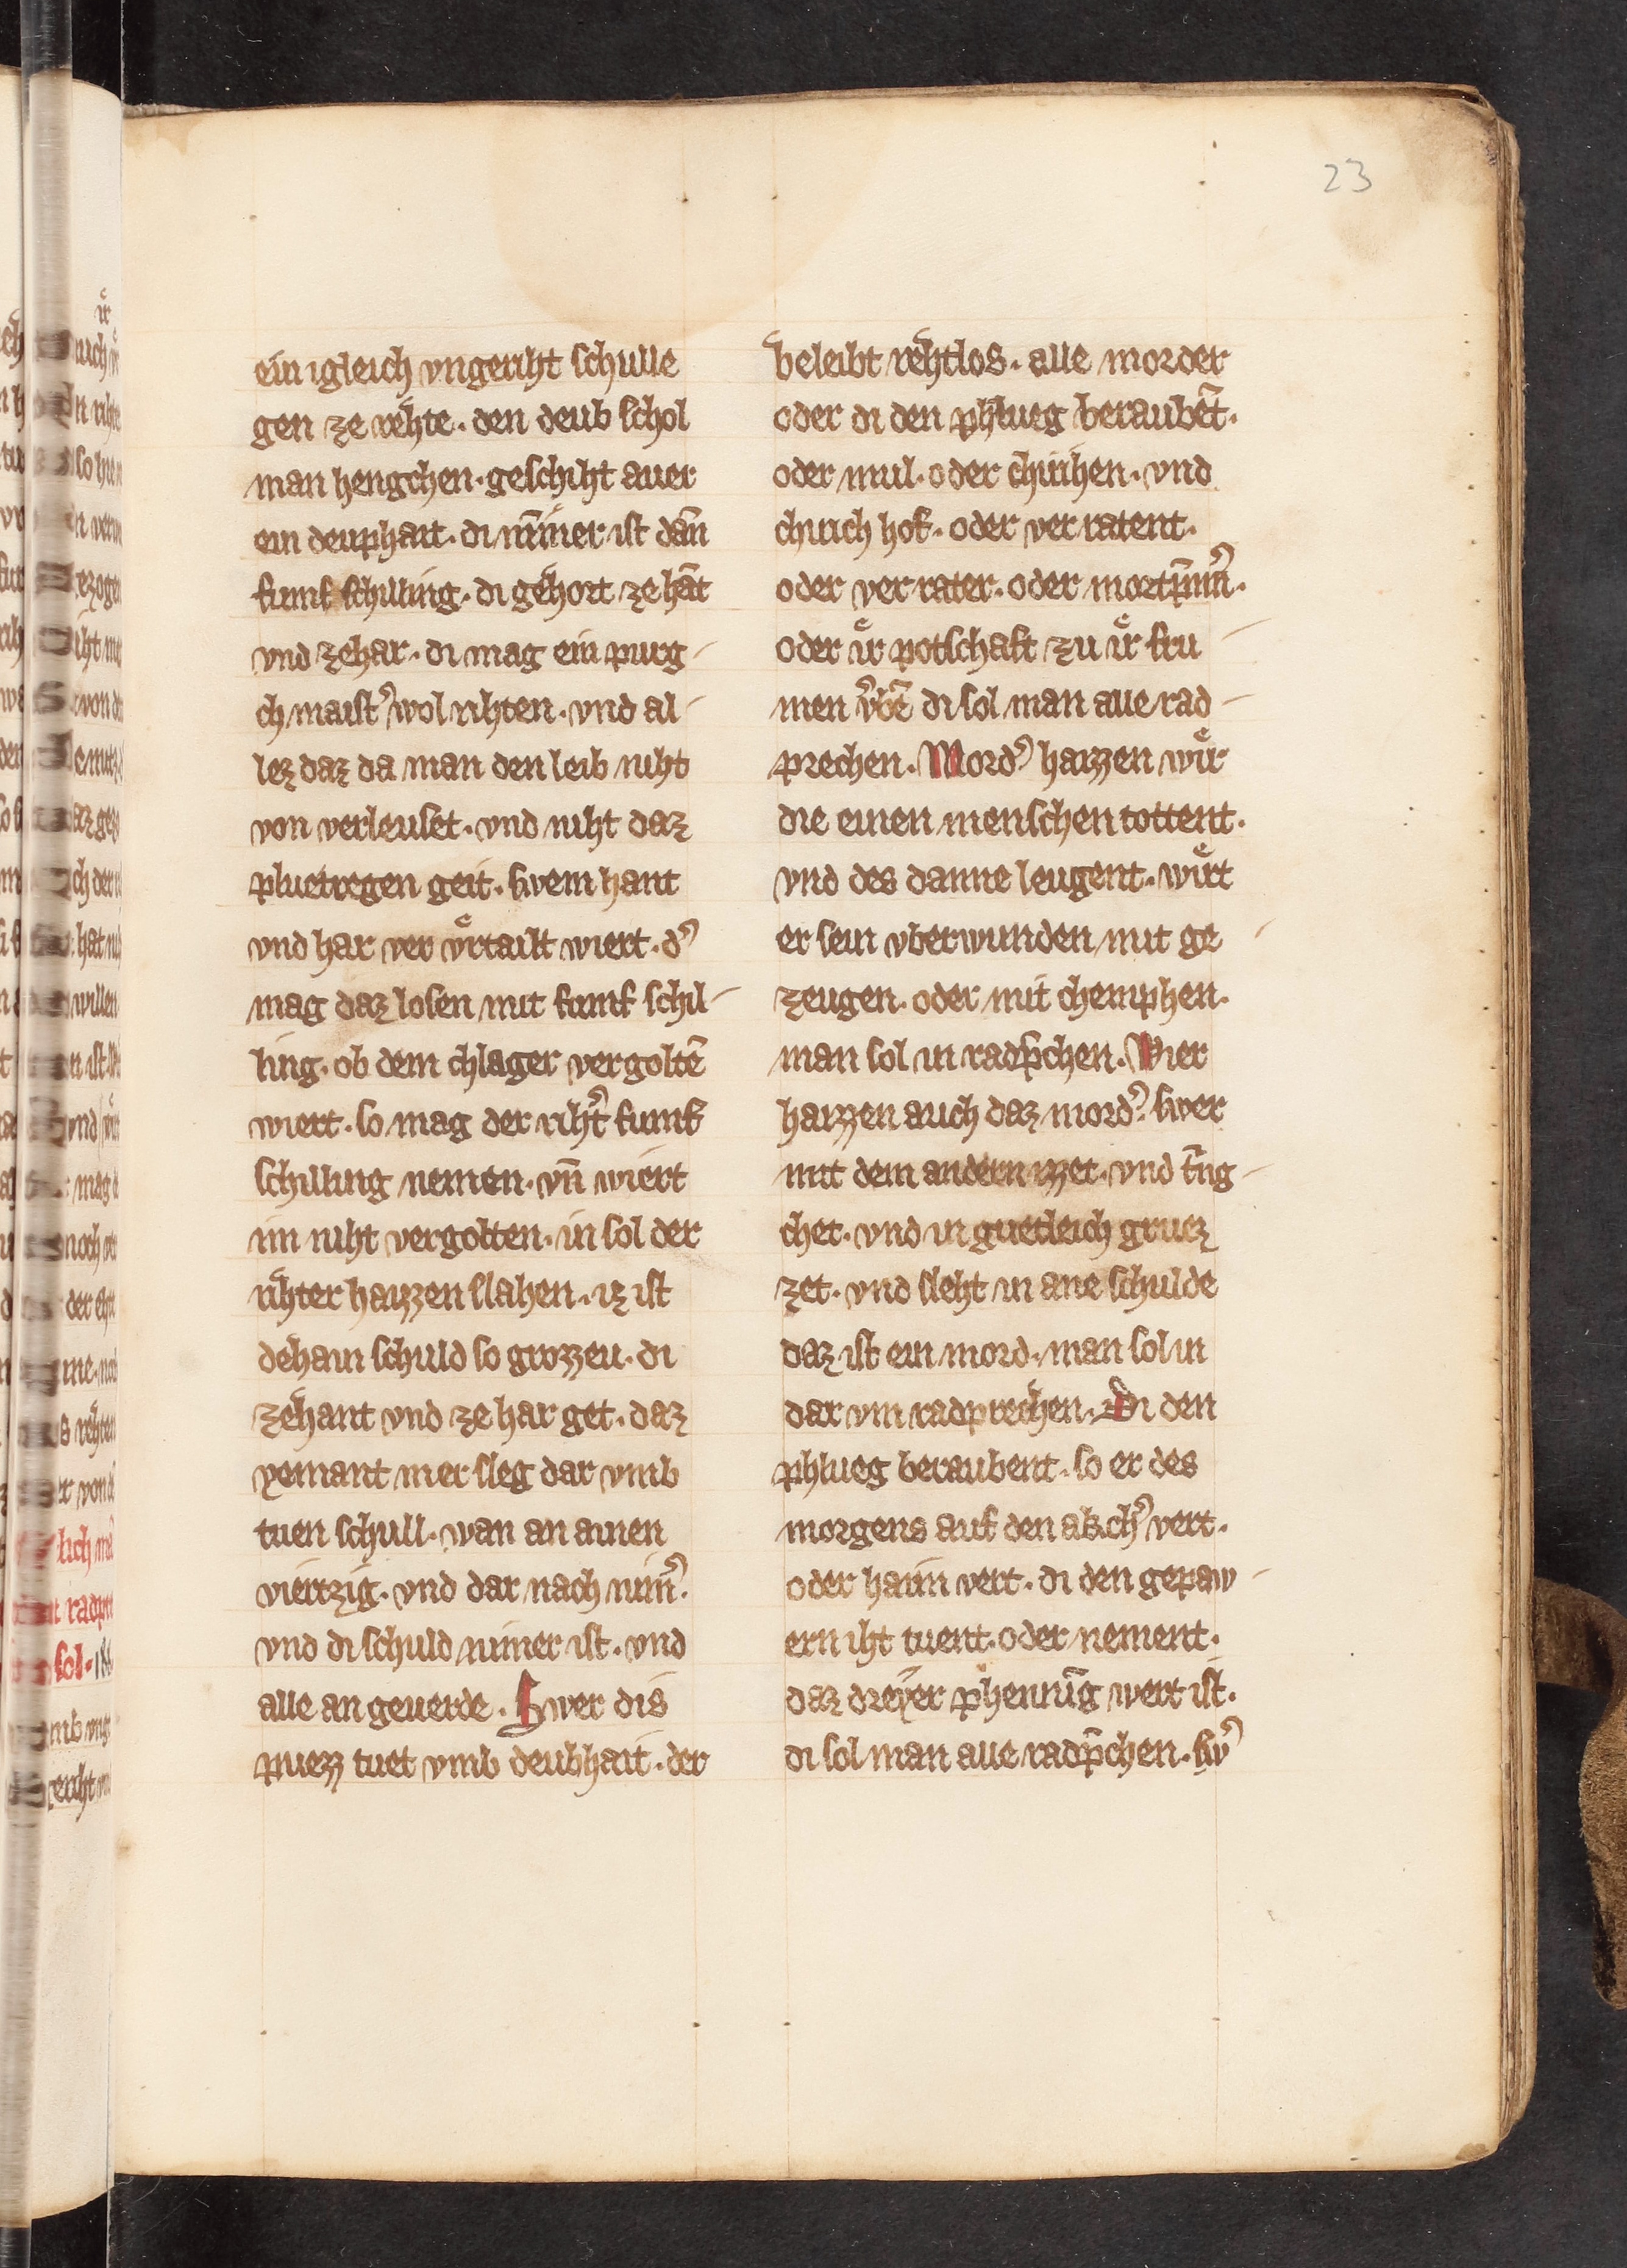 23
ein igleich vngeriht schulle
gen ze rehte. den deub schol
man hengchen. geschiht auer
ein deuphait. di mīnner ist dan̄
fumf schilling. di gehort ze hāt
vnd ze har. di mag ein purg-
ch maistˀ wol rihten. vnd al-
lez daz da man den leib niht
von verleuset. vnd niht daz
pluetregen geit. swem hant
vnd har ver vͤrtailt wiert. dˀ
mag daz losen mit fumf schil-
ling. ob dem chlager vergoltē
wiert. so mag der rihtˀ fumf
schilling nemen. vn̄ wiert
im niht vergolten. in sol der
rihter haizzen slahen. iz ist
dehain schuld so grozzeu. di
ze hant vnd ze har get. daz
yemant mer sleg dar vmb
tuen schull. wan an ainen
viertzig. vnd dar nach minˀ.
vnd di schuld minner ist. vnd
alle an geuerde. Swer dis
puezz tuet vmb deubhait. der
beleibt rehtlos. alle morder
oder di den phlueg beraubēt.
oder mul. oder chirihen. vnd
chirich hof. oder ver ratent.
oder ver rater. oder mortp̄nnˀ.
oder iͤr potschaft zu iͤr fru
men vˀbē di sol man alle rad-
prechen. Mordˀ haizzen wiͤr
die einen menschen tottent.
vnd des danne leugent. wiͤrt
er sein vberwunden mit ge
zeugen. oder mit chemphen.
man sol in radp̄chen. Wier
haizzen auch daz mordˀ. swer
mit dem andern izzet. vnd trīg-
chet. vnd in guetleich gruez
zet. vnd sleht in ane schulde
daz ist ein mord. man sol in
dar vm radprechen. Di den
phlueg beraubent. so er des
morgens auf den akchˀ vert.
oder haim vert. di den gepaw-
ern iht tuent. oder nement.
daz dreyer phennīg wert ist.
di sol man alle radp̄chen. swˀ